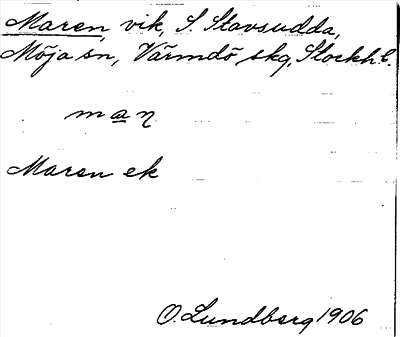 Maren, vik, S. Stavsudda,
Möja sn, Värmdö skg, Stockh. l.
man
Maren ek
O. Lundberg 1906